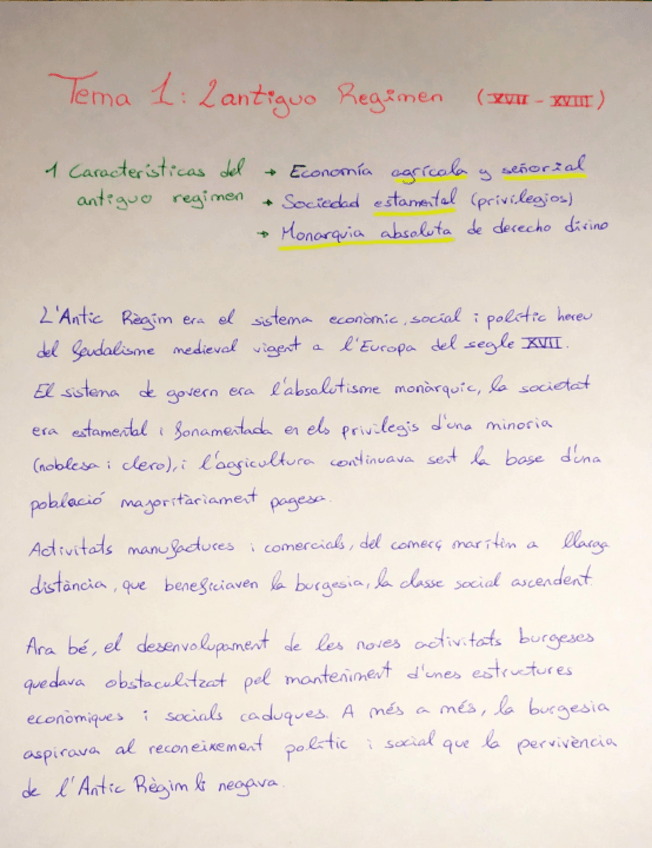 Tema 1: L'antiguo Regimen (XVII - XVIII)
1 Características del → Economía agrícola y señorial
antiguo regimen → Sociedad estamental (privilegios)
→ Monarquia absoluta de derecho divino
L'Antic Règim era el sistema econòmic, social i polític hereu
del feudalisme medieval vigent a l'Europa del segle XVII.
El sistema de govern era l'absolutisme monàrquic, la societat
era estamental i fonamentada en els privilegis d'una minoria
(noblesa i clero), i l'agricultura continuava sent la base d'una
població majoritàriament pagesa.
Activitats manufactures i comercials, del comerç marítim a llarga
distància, que beneficiaven la burgesia, la classe social ascendent.
Ara bé, el desenvolupament de les noves activitats burgeses
quedava obstaculitzat pel manteniment d'unes estructures
econòmiques i socials caduques. A més a més, la burgesia
aspirava al reconeixement polític i social que la pervivència
de l'Antic Règim li negava.